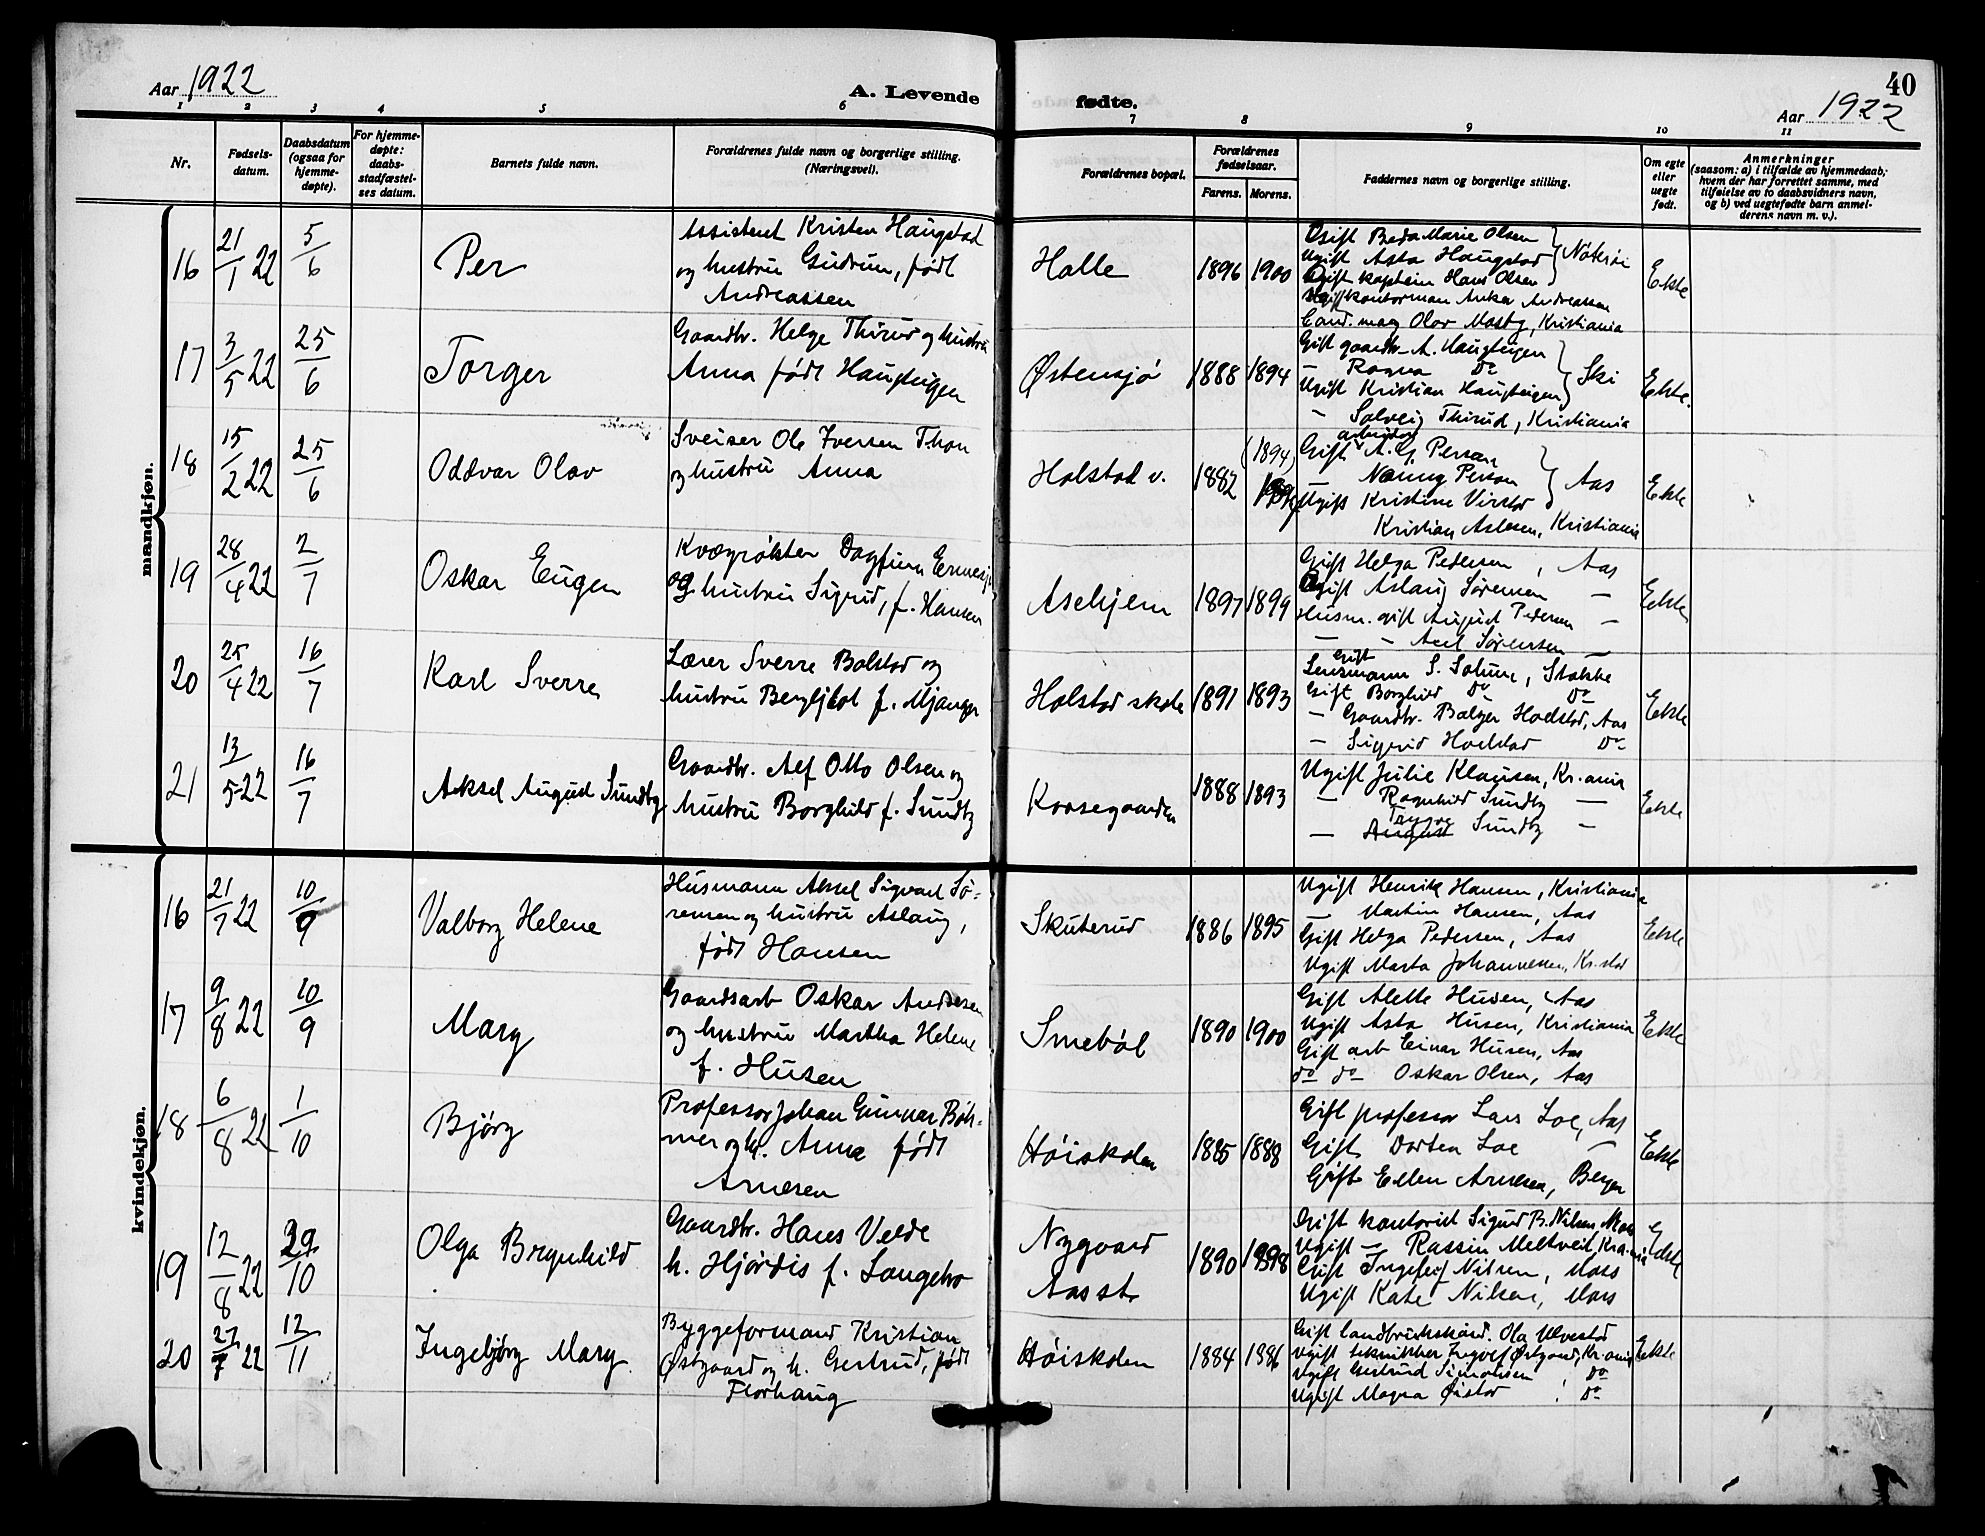 Aar 1922
A. Levende
fødte.
40
Aar 1922
1 2 3 4 5 6 7 8 9 10 11
Nr.
Fødsels-
datum.
Daabsdatum
(ogsaa for
hjemme-
døpte).
For hjemme-
døpte:
daabs-
stadfæstel-
ses datum.
Barnets fulde navn.
Forældrenes fulde navn og borgerlige stilling.
(Næringsvei).
Forældrenes bopæl.
Forældrenes
fødselsaar.
Farens. Morens.
Faddernes navn og borgerlige stilling.
Om egte
eller
uegte
født.
Anmerkninger
(saasom: a) i tilfælde av hjemmedaab,
hvem der har forrettet samme, med
tilføielse av to daabsvidners navn,
og b) ved uegtefødte barn anmel-
derens navn m. v.).
mandkjøn.
16 21/1 22 5/6 Per
Assistent Kristen Haugstad
og hustru Gudrun, født
Andreassen
Halle 1896 1900
Gift Beda Marie Olsen
Ugift Asta Haugstad
Gift kaptein Hans Olsen
Nøterøi
kontorman Anker Andreassen
Cand. mag Olav Mosby, Kristiania
Ekte
17 3/5 22 25/6 Torger
Gaardbr. Helge Thirud og hustru
Anna født Haugteigen
Østensjö 1888 1894
Gift gaardbr. A. Haugteigen
— Ragna Do
Ugift Kristian Haugteigen
Ski
— Solveig Thirud, Kristiania
Ekte.
18 15/2 22 25/6 Oddvar Olav
Sveiser Ole Iversen Thon
og hustru Anna
Holstad v. 1882 (1894)
arbeider
Gift A. G. Person
Nanny Person
Ugift Kristine
Aas
Kristian Aslesen, Kristiania
Ekte
19 28/4 22 2/7 Oskar Eugen
Kvægrøkter Dagfinn
og hustru Sigrid, f. Hansen
Aschjem 1897 1899
Gift Helga Pedersen, Aas
Gift Aslaug Sørensen —
Husm. gift August Pedersen —
— — Axel Sørensen —
Ekte
20 25/4 22 16/7 Karl Sverre
Lærer Sverre Bolstad og
hustru Bergljot f. Mjanger
Holstad skole 1891 1893
Gift
Lensmann S. Solum, Stokke
Gift Borghild Do Do
— Gaardbr. Bølger Holstad, Aas
— Sigrid Holstad Do
Ekte
21 13/5 22 16/7 Aksel August Sundby
Gaardbr. Alf Otto Olsen og
hustru Borghild f. Sundby
Krosegaarden 1888 1893
Ugift Julie Klausen, Kr.ania
— Ragnhild Sundby —
Trygve
— August Sundby —
Ekte
kvindekjøn.
16 21/7 22 10/9 Valborg Helene
Husmann Aksel Sigvart Sö-
rensen og hustru Aslaug,
født Hansen
Skuterud 1886 1895
Ugift Henrik Hansen, Kristiania
— Martin Hansen, Aas
Gift Helga Pedersen, Aas
Ugift Marta Johannesen, Kr.stad
Ekte
17 9/8 22 10/9 Mary
Gaardsarb Oskar Andersen
og hustru Martha Helene
f. Husen
Smebøl 1890 1900
Gift Alette Husen, Aas
Ugift Asta Husen, Kristiania
Gift arb Einar Husen, Aas
do do Oskar Olsen, Aas
Ekte
18 6/8 22 1/10 Bjørg
Professor Johan Gunnar Bøh-
mer og h. Anna født
Arnesen
Høiskolen 1885 1888
Gift professor Lars Loe, Aas
Gift Dortea Loe —
Gift Ellen Arnesen, Bergen
Ekte
19 12/8 22 29/10 Olga Brynhild
Gaardbr. Hans Velde
h. Hjørdis f. Langebro
Nygaard
Aas st. 1890 1898
Gift kontorist Sigurd B. Nilsen, Moss
Ugift — Rassin Meltveit, Kr.ania
Gift Ingeleif Nilsen, Moss
Ugift Kate Nilsen, Moss
Ekte
20 27/7 22 12/11 Ingebjørg Mary
Byggeformand Kristian
Østgaard og h. Gertrud, født
Florhaug
Høiskolen 1884 1886
Gift landbrukskand. Ola Ulvestad
Ugift tekniker Ingvef Østgaard, Kr.ania
Ugift Gertrud Simonsen, Do
Ugift Magna Øistad, Do
Ekte